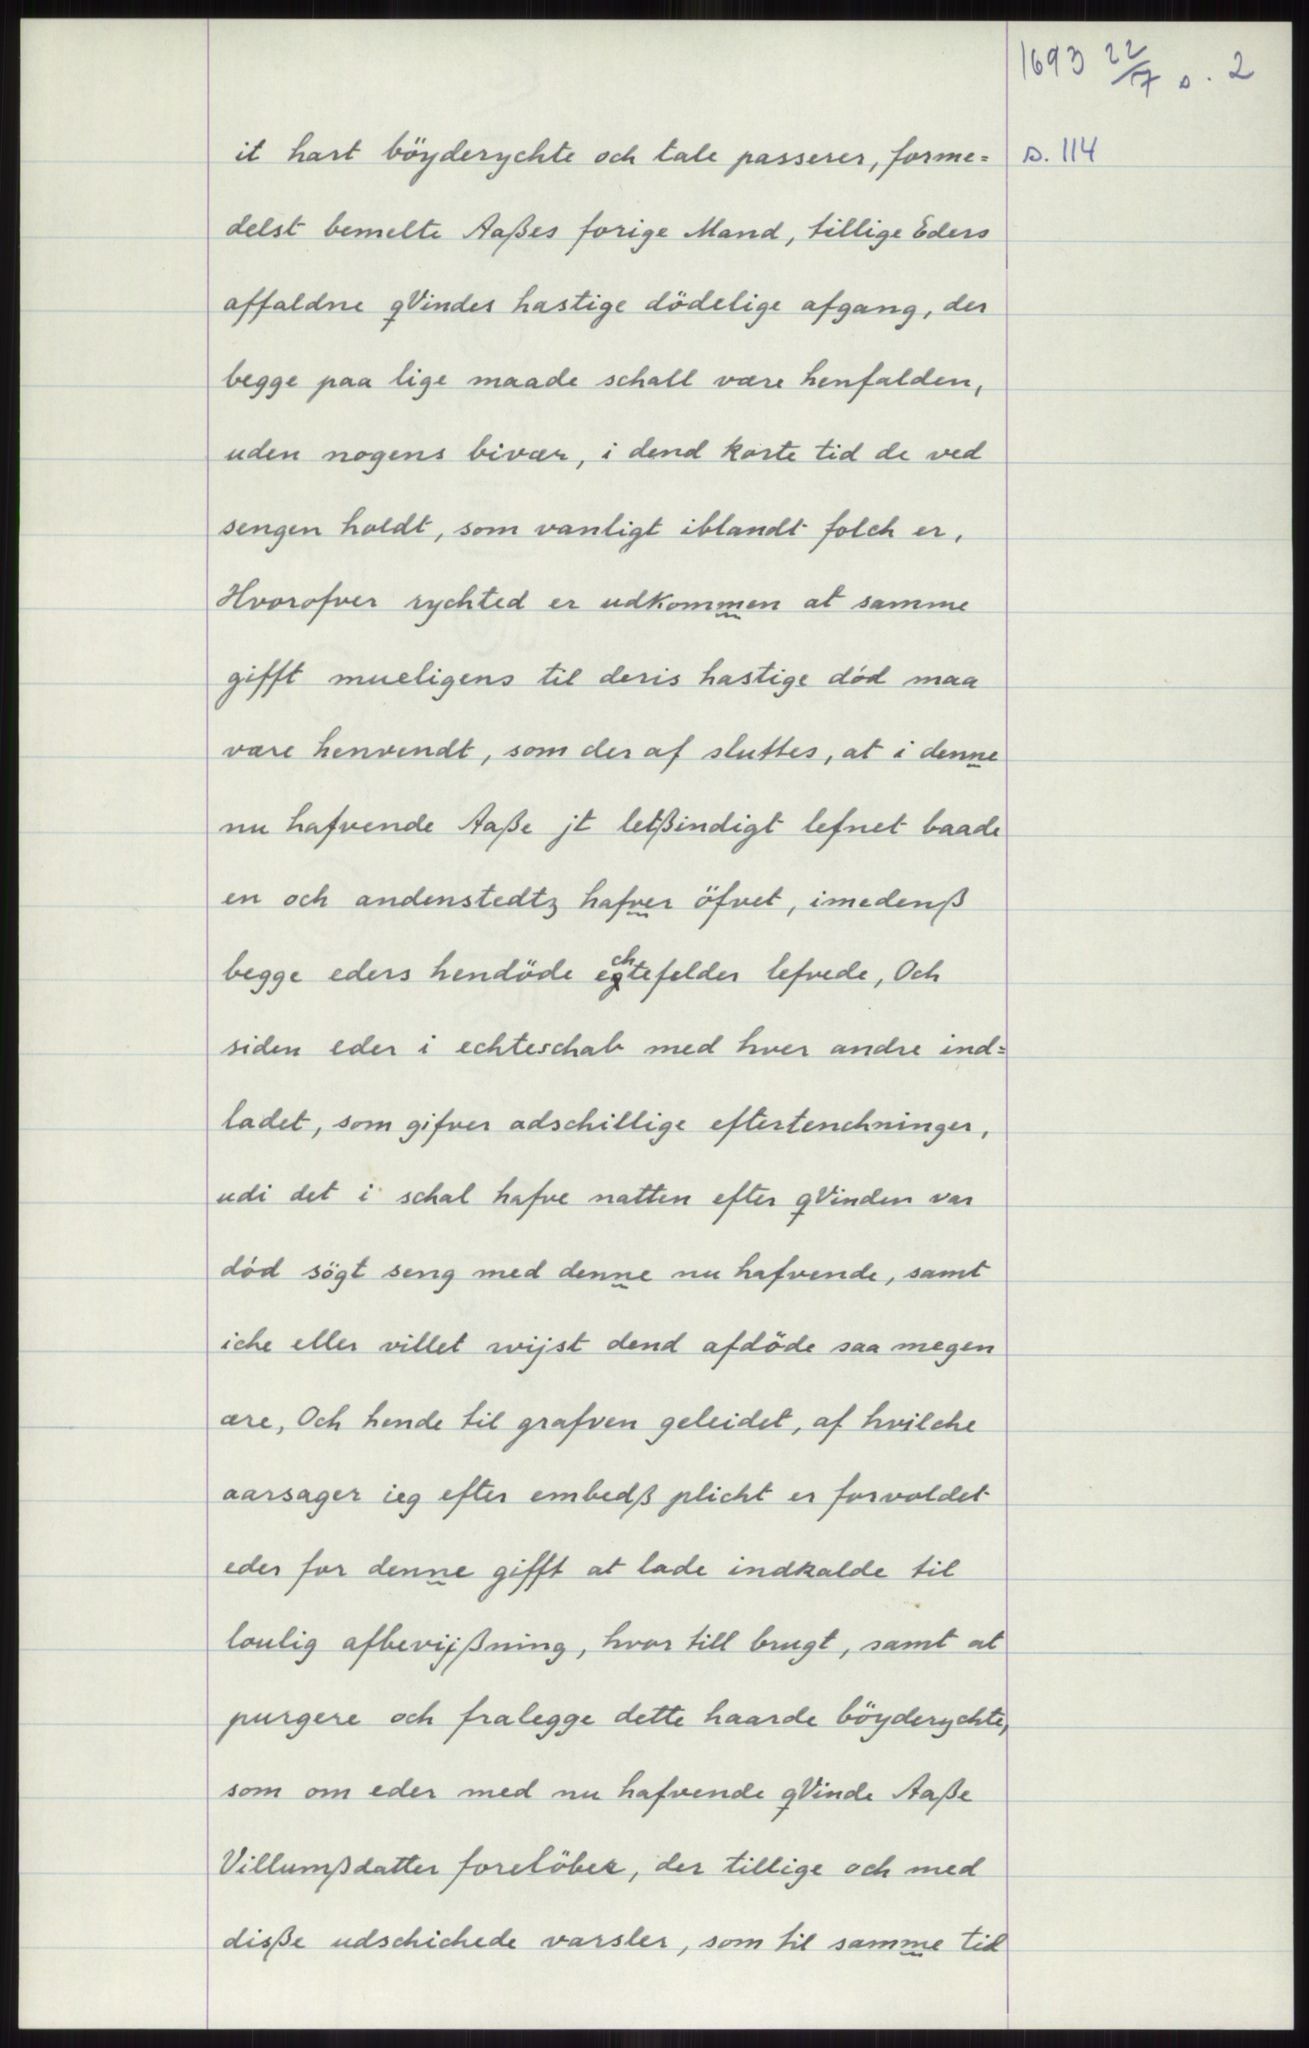 1693 22/7 s. 2
it hart böyderychte och tale passerer, forme= s. 114
delst bemelte Aaßes forige Mand, tillige Eders
affaldne qVindes hastige dödelige afgang, der
begge paa lige maade schall være henfalden,
uden nogens bivær, i dend korte tid de ved
sengen holdt, som vanligt iblandt folch er,
Hvorofver rychted er udkommen at samme
gifft mueligens til deris hastige död maa
være henvendt, som der af sluttes, at i denne
nu hafvende Aaße jt letßindigt lefnet baade
en och andenstedtz hafver öfvet, imedenß
begge eders hendöde echtefelder lefvede, Och
siden eder i echteschab med hver andre ind=
ladet, som gifver adschillige eftertenchninger,
udi det i schal hafve natten efter qVinden var
död sögt seng med denne nu hafvende, samt
iche eller villet wijst dend afdöde saa megen
ære, Och hende til grafven geleidet, af hvilche
aarsager ieg efter embedß plicht er forvoldet
eder for denne gifft at lade indkalde til
loulig afbevijßning, hvor till brugt, samt at
purgere och fralegge dette haarde böyderychte,
som om eder med nu hafvende qVinde Aaße
Villumßdatter forelöber, der tillige och med
diße udschichede varsler, som til samme tid